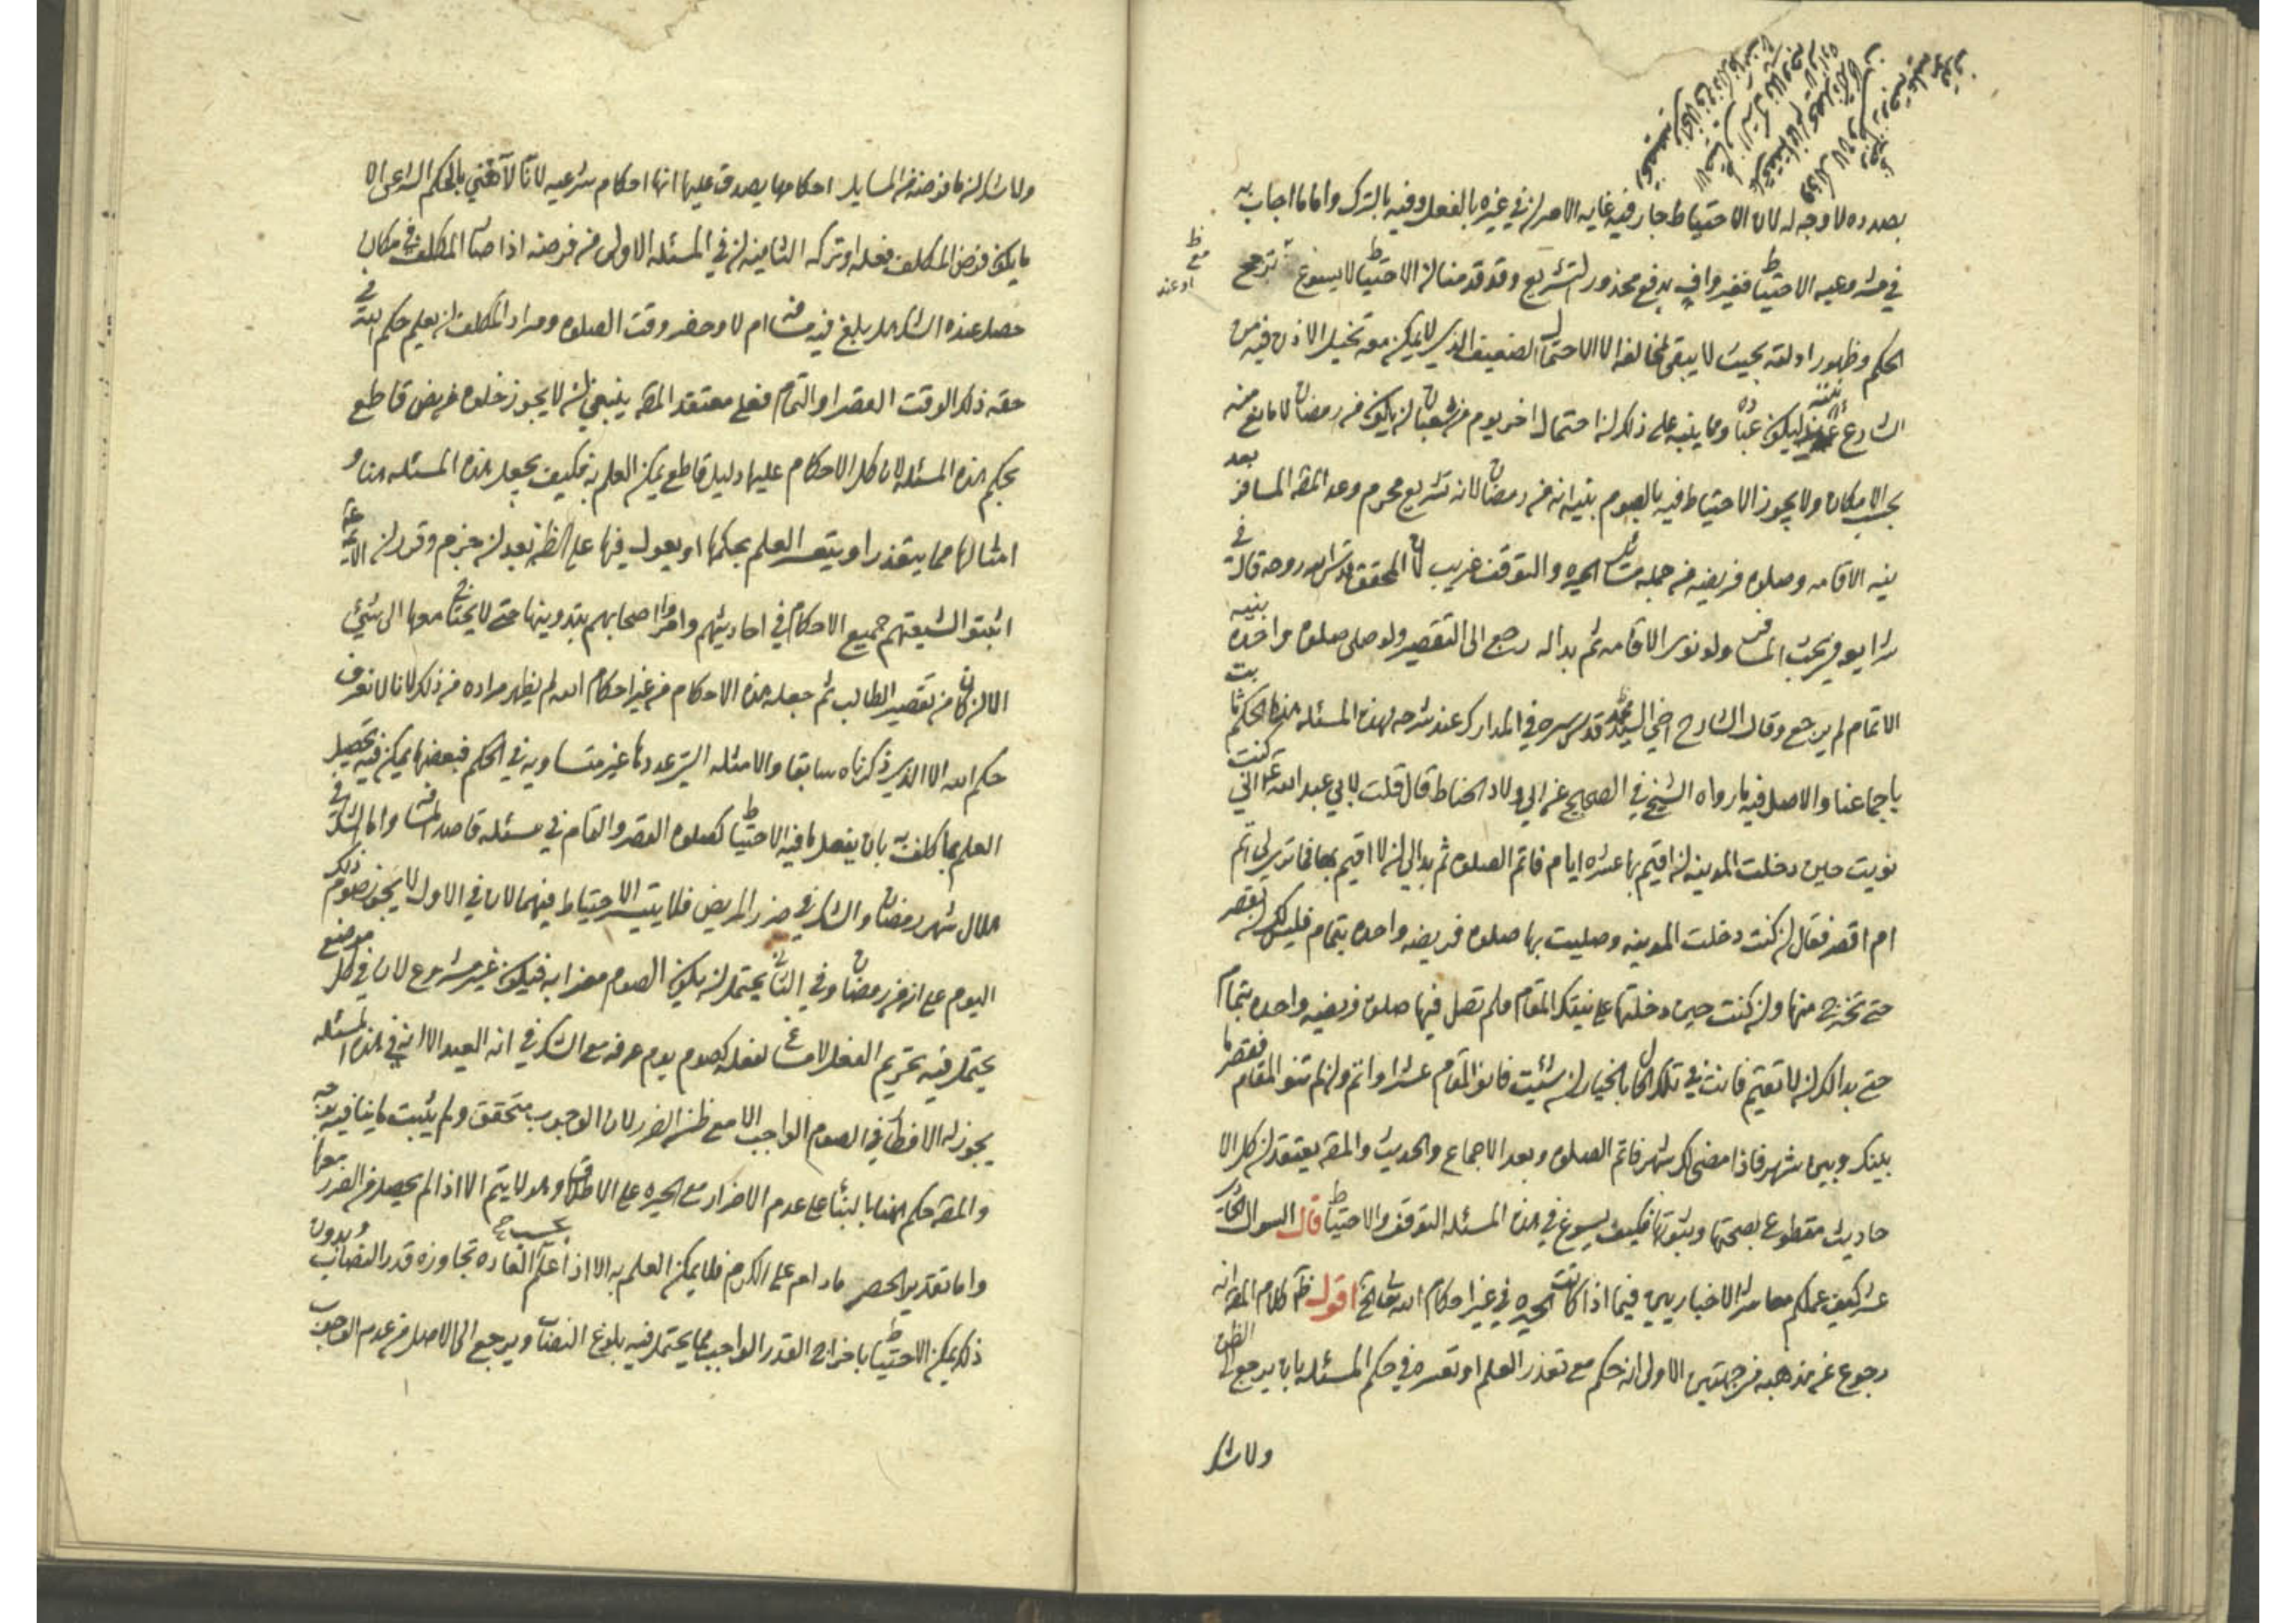 بصدده لا وجه له لان الاحتياط جار فيه غايه الامر ان في غيره بالفعل وفيه بالترك واما ما اجاب به
في مشروعيه الاحتياط فغير واف بدفع محذور التشريع وقد قدمنا ان الاحتياط لا يسوغ ترجح
الحكم وظهور ادلته بحيث لا يبقى لمخالفه الا الاحتمال الضعيف الذي لا يمكن معه تخيل الاذن فيه من
الشارع ليكون عباده ومما ينبه على ذلك ان احتمال اخر يوم من شعبان ان يكون من رمضان لا مانع منه
بحسب الامكان ولا يجوز الاحتياط فيه بالصوم بنيه انه من رمضان لانه تشريع محرم وعد المص المسافر بعد
نيه الاقامه وصلوه فريضه من جمله مسائل الحيره والتوقف غريب فان المحقق قدس الله روحه قال في
شرايع في بحث المسافر ولو نوى الاقامه ثم بدا له رجع الى التقصير ولو صلى صلوه واحده بنيه
الاتمام لم يرجع وقال الشارح اخي السيد محمد قدس سره في المدارك عند شرحه لهذه المسئله هذا الحكم ثابت
باجماعنا والاصل فيه ما رواه الشيخ في الصحيح عن ابي ولاد الحناط قال قلت لابي عبد الله ع اني كنت
نويت حين دخلت المدينه ان اقيم بها عشره ايام فاتم الصلوه ثم بدا لي ان لا اقيم بها فما ترى لي اتم
ام اقصر فقال ان كنت دخلت المدينه وصليت بها صلوه فريضه واحده بتمام فليس لك ان تقصر
حتى تخرج منها وان كنت حين دخلتها على نيتك المقام ولم تصل فيها صلوه فريضه واحده بتمام
حتى بدا لك ان لا تقيم فانت في تلك الحال بالخيار ان شئت فانو المقام عشرا واتم وان لم تنو المقام فقصر ما
بينك وبين شهر فاذا مضى لك شهر فاتم الصلوه وبعد الاجماع والحديث والمص يعتقد ان كل الا
حاديث مقطوع بصحتها وثبوتها فكيف يسوغ في هذه المسئله التوقف والاحتياط قال السوال الحادي
عشر كيف عملكم معاشر الاخباريين فيما اذا كانت الحيره في غير احكام الله تعالى الخ اقول ظ كلام المص انه
رجوع عن مذهبه من جهتين الاولى انه حكم مع تعذر العلم او تعسره في حكم المسئله بان يرجع الى الظن
ولا شك
ولا شك ان ما فرضه من المسايل احكامها يصدق عليها انها احكام شرعيه لانا لا نعني بالحكم الشرعي الا
ما يكون فرض المكلف فعله او تركه الثانيه ان في المسئله الاولى من فرضه اذا صار المكلف في مكان
حصل عنده الشك هل بلغ فيه مسافه ام لا وحضر وقت الصلوه ومراد المكلف ان يعلم حكم الله في
حقه ذلك الوقت القصر او التمام فعلى معتقد المص ينبغي ان لا يجوز خلوه عن نص قاطع
بحكم هذه المسئله لان كل الاحكام عليها دليل قاطع يمكن العلم به فكيف يجعل هذه المسئله هنا و
امثالها مما يتعذر او يتعسر العلم بحكمها او يعول فيها على الظن بعد ان جزم وقرر ان الائمه ع
اثبتوا لشيعتهم جميع الاحكام في احاديثهم وامروا اصحابهم بتدوينها حتى لا يحتاج معها الى شيئ
الا ان كان من تقصير الطالب ثم جعله هذه الاحكام من غير احكام الله لم يظهر مراده من ذلك لانا لا نعرف
حكم الله الا الذي ذكرناه سابقا والامثله التي عددها غير متساويه في الحكم فبعضها يمكن فيه تحصيل
العلم بما كلف به بان يفعل ما فيه الاحتياط كصلوه القصر والتمام في مسئله قاصد المسافه واما الشك في
هلال شهر رمضان والشك في ضرر المريض فلا يتيسر الاحتياط فيهما لان في الاول لا يجوز صوم ذلك
اليوم على انه من رمضان وفي الثاني يحتمل ان يكون الصوم مضرا به فيكون غير مشروع لان في كل موضع
يحتمل فيه تحريم الفعل لا مساغ لفعله كصوم يوم عرفه مع الشك في انه العيد الا انه في هذه المسئله
يجوز له الافطار في الصوم الواجب الا مع ظن الضرر لان الوجوب متحقق ولم يثبت ما ينافيه
والمص حكم هنا بالبناء على عدم الاضرار مع الحيره على الاطلاق وهو لا يتم الا اذا لم يحصل من الضرر معها
واما تقدير الحصر ما دام على الكرم فلا يمكن العلم به الا اذا علم بحسب العاده تجاوزه قدر النصاب وبدون
ذلك يمكن الاحتياط باخراج القدر الواجب مما يحتمل فيه بلوغ النصاب ويرجع الى الاصل من عدم الوجوب